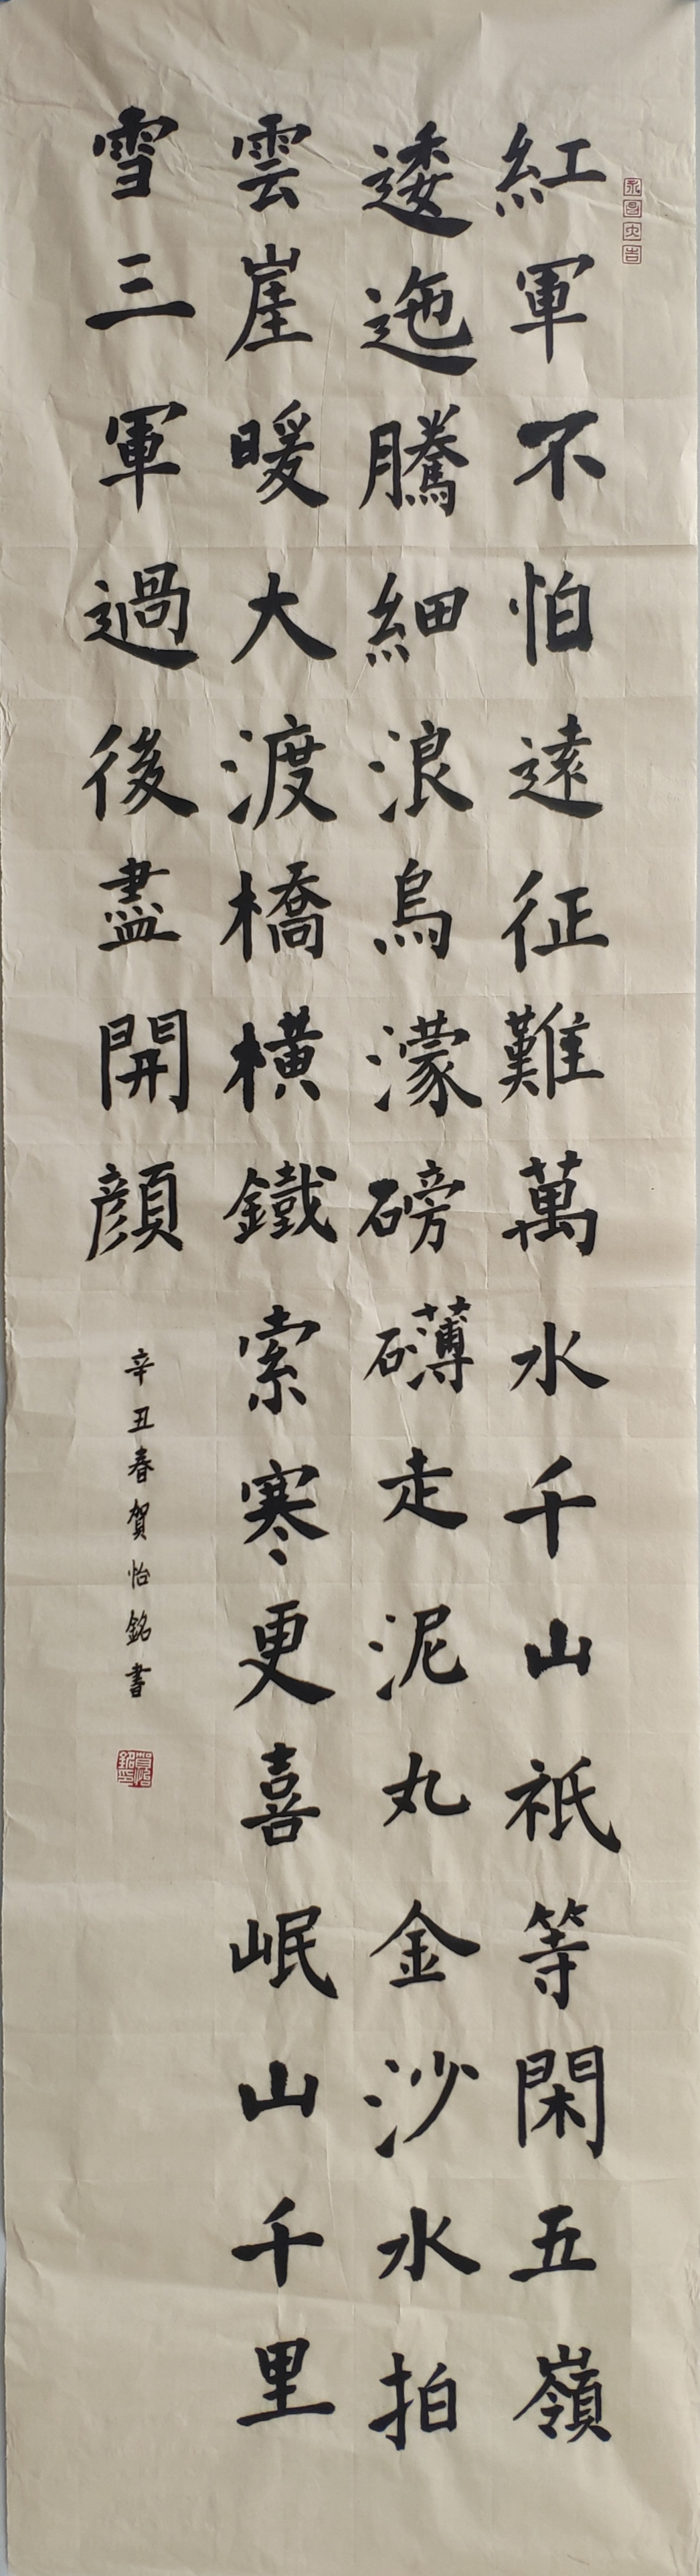 紅軍不怕遠征難萬水千山祇等閑五嶺
逶迤騰細浪烏濛磅礴走泥丸金沙水拍
雲崖暖大渡橋橫鐵索寒更喜岷山千里
雪三軍過後盡開顔
辛丑春賀怡銘書